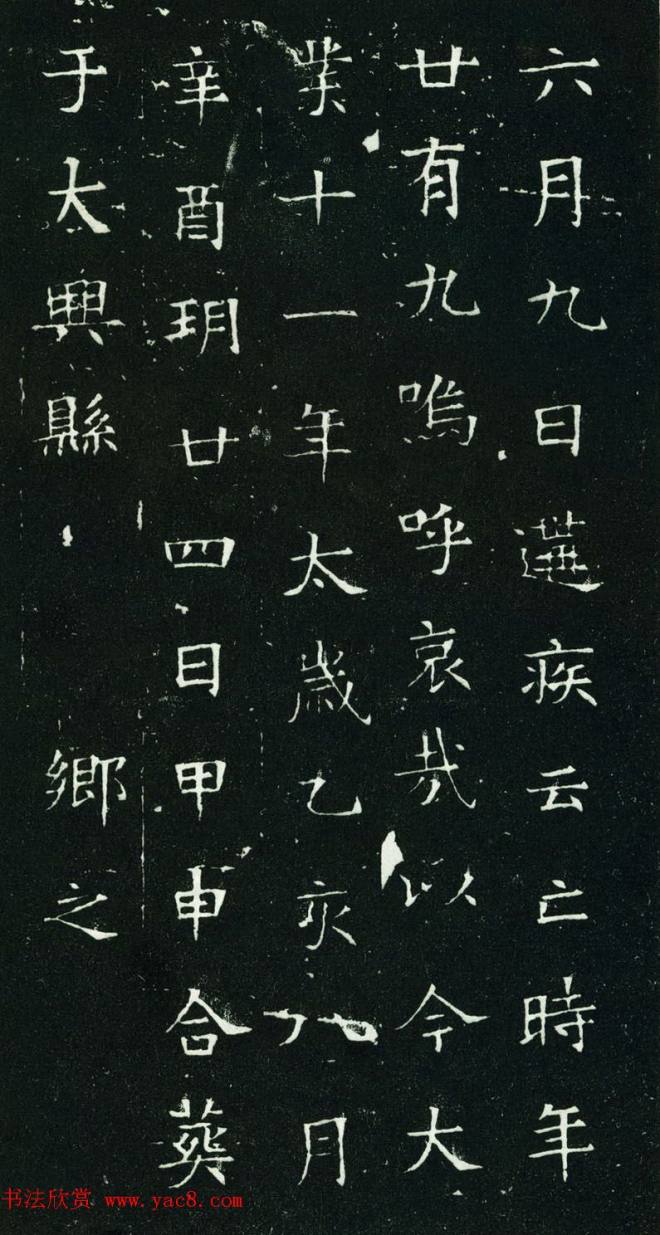 六月九日遘疾云亡時年
廿有九嗚呼哀哉以今大
業十一年太歲乙亥八月
辛酉玥廿四日甲申合葬
于大興縣 鄉之
书法欣赏 www.yac8.com